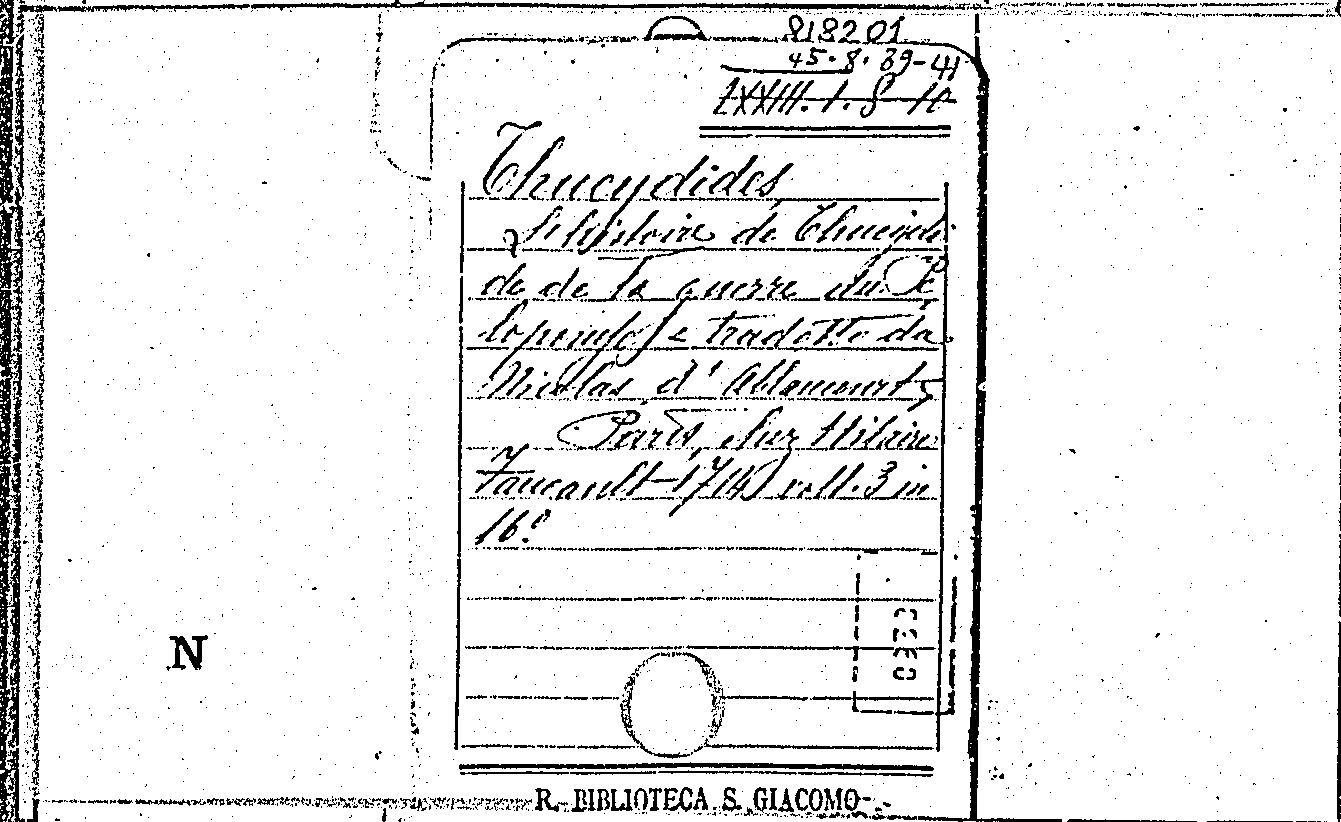 818201
45.8.39-41
LXXIII.1.8-10
Thucydides
L'histoire de Thucydi
de de la guerre du Pé
loponese tradotto da
Nicolas d'Ablamourt,
Paris, chez Hilaire
Foucault-1714 voll. 3 in
16°
N
R. BIBLIOTECA S. GIACOMO